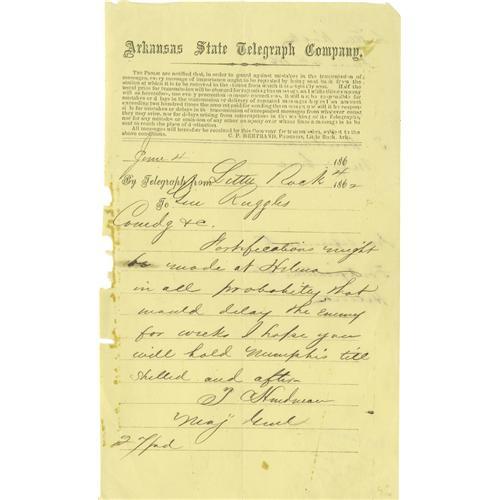 Arkansas State Telegraph Company.
THE PUBLIC are notified that, in order to guard against mistakes in the transmission of
messages, every message of importance ought to be repeated by being sent back from the
station at which it is to be received to the station from which it is originally sent. Half the
usual price for transmission will be charged for repeating the message, and while this company
will, as heretofore, use every precaution to ensure correctness, it will not be responsible for
mistakes or delays in the transmission or delivery of repeated messages beyond an amount
exceeding two hundred times the amount paid for sending the message; nor will it be responsible
for mistakes or delays in the transmission of unrepeated messages from whatever cause
they may arise, nor for delays arising from interruptions in the working of its Telegraphs,
nor for any mistake or omission of any other company over whose lines a message is to be
sent to reach the place of destination.
All messages will hereafter be received by this Company for transmission, subject to the
above conditions. C. P. BERTRAND, President, Little Rock, Ark.
June 4 186
By Telegraph from Little Rock 4 1862
To Gen Ruggles
Comdg &c.
Fortifications might
be made at Helena
in all probability that
would delay the enemy
for weeks I hope you
will hold Memphis till
shelled and after
T Hindman
Maj Genl
27 pd